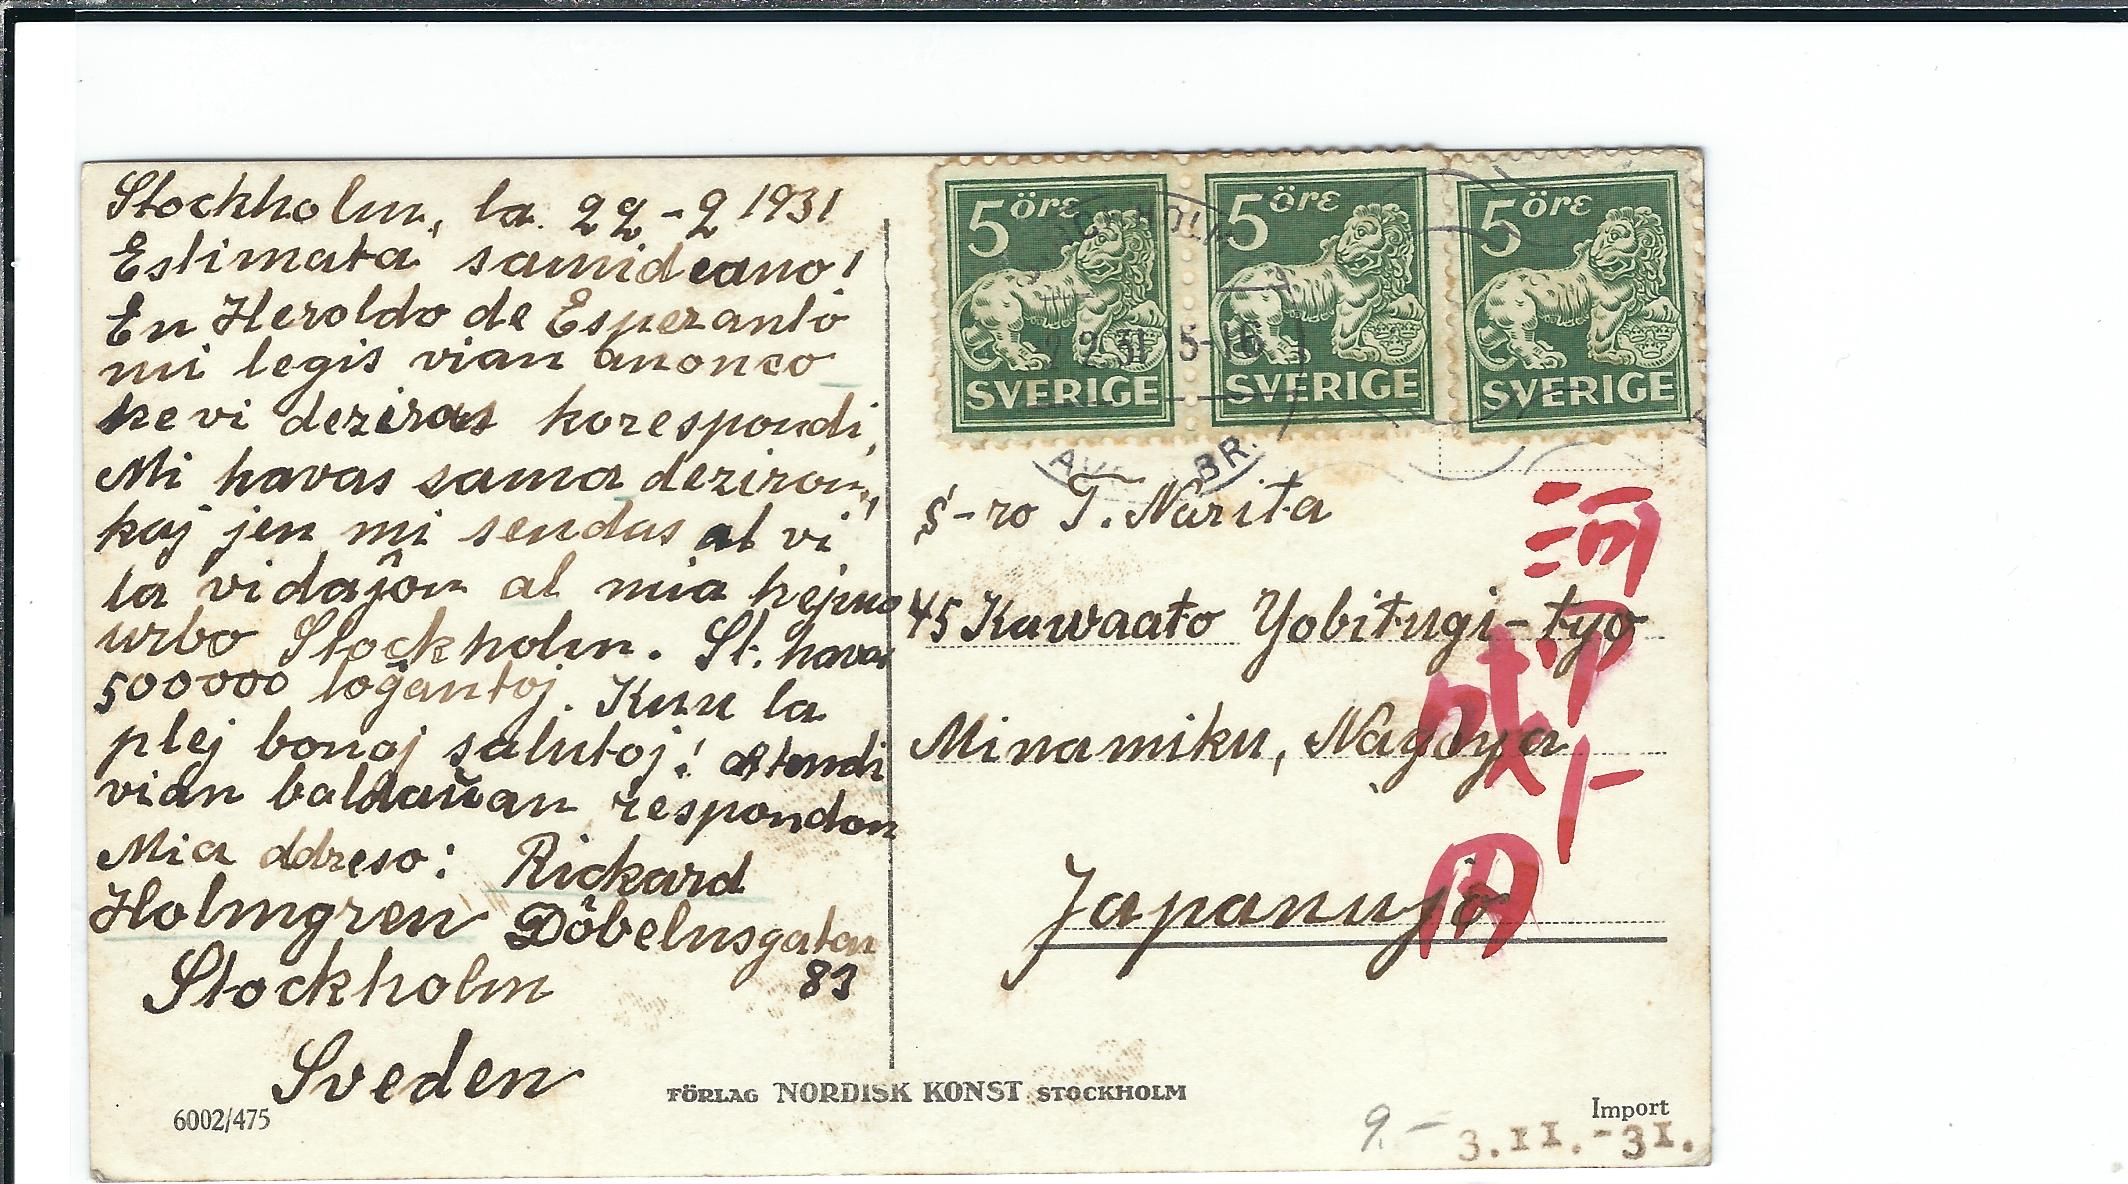 Stockholm, la 22-2 1931
Estimata samideano!
En Heroldo de Esperanto
mi legis vian anonco
ke vi deziras korespondi,
Mi havas sama deziron,
kaj jen mi sendas al vi
la vidaĵon al mia hejmo
urbo Stockholm. St. havas
500000 loĝantoj. Kun la
plej bonaj salutoj! atendi
vian baldaŭan respondon
Mia adreso: Rickard
Holmgren Döbelnsgatan
83
Stockholm
Sveden
6002/475
FÖRLAG NORDISK KONST STOCKHOLM
5 öre
SVERIGE
5 öre
SVERIGE
5 öre
SVERIGE
2.2.31 15-16
BR.
Ŝ-ro T. Narita
45 Kawaato Yobitugi-tyo
Minamiku, Nagoya
Japanujo
河戸
内
Import
9.-
3.II.-31.